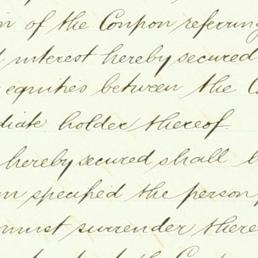 of the Coupon referring
interest hereby secured
equities between the
diate holder thereof
hereby secured shall
specified the person
must surrender